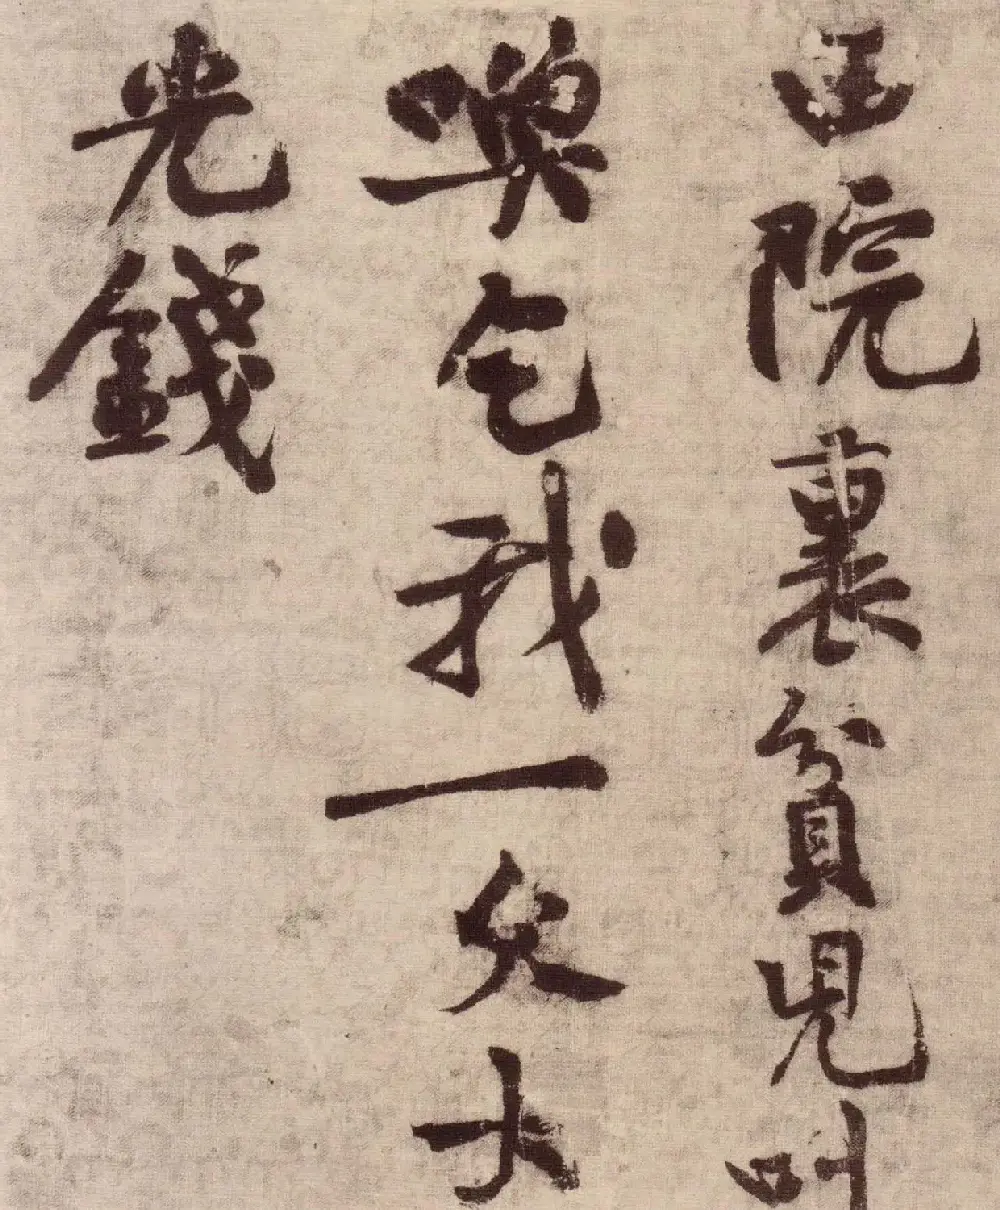 田院裏貧兒叫
喚乞我一文大
光錢